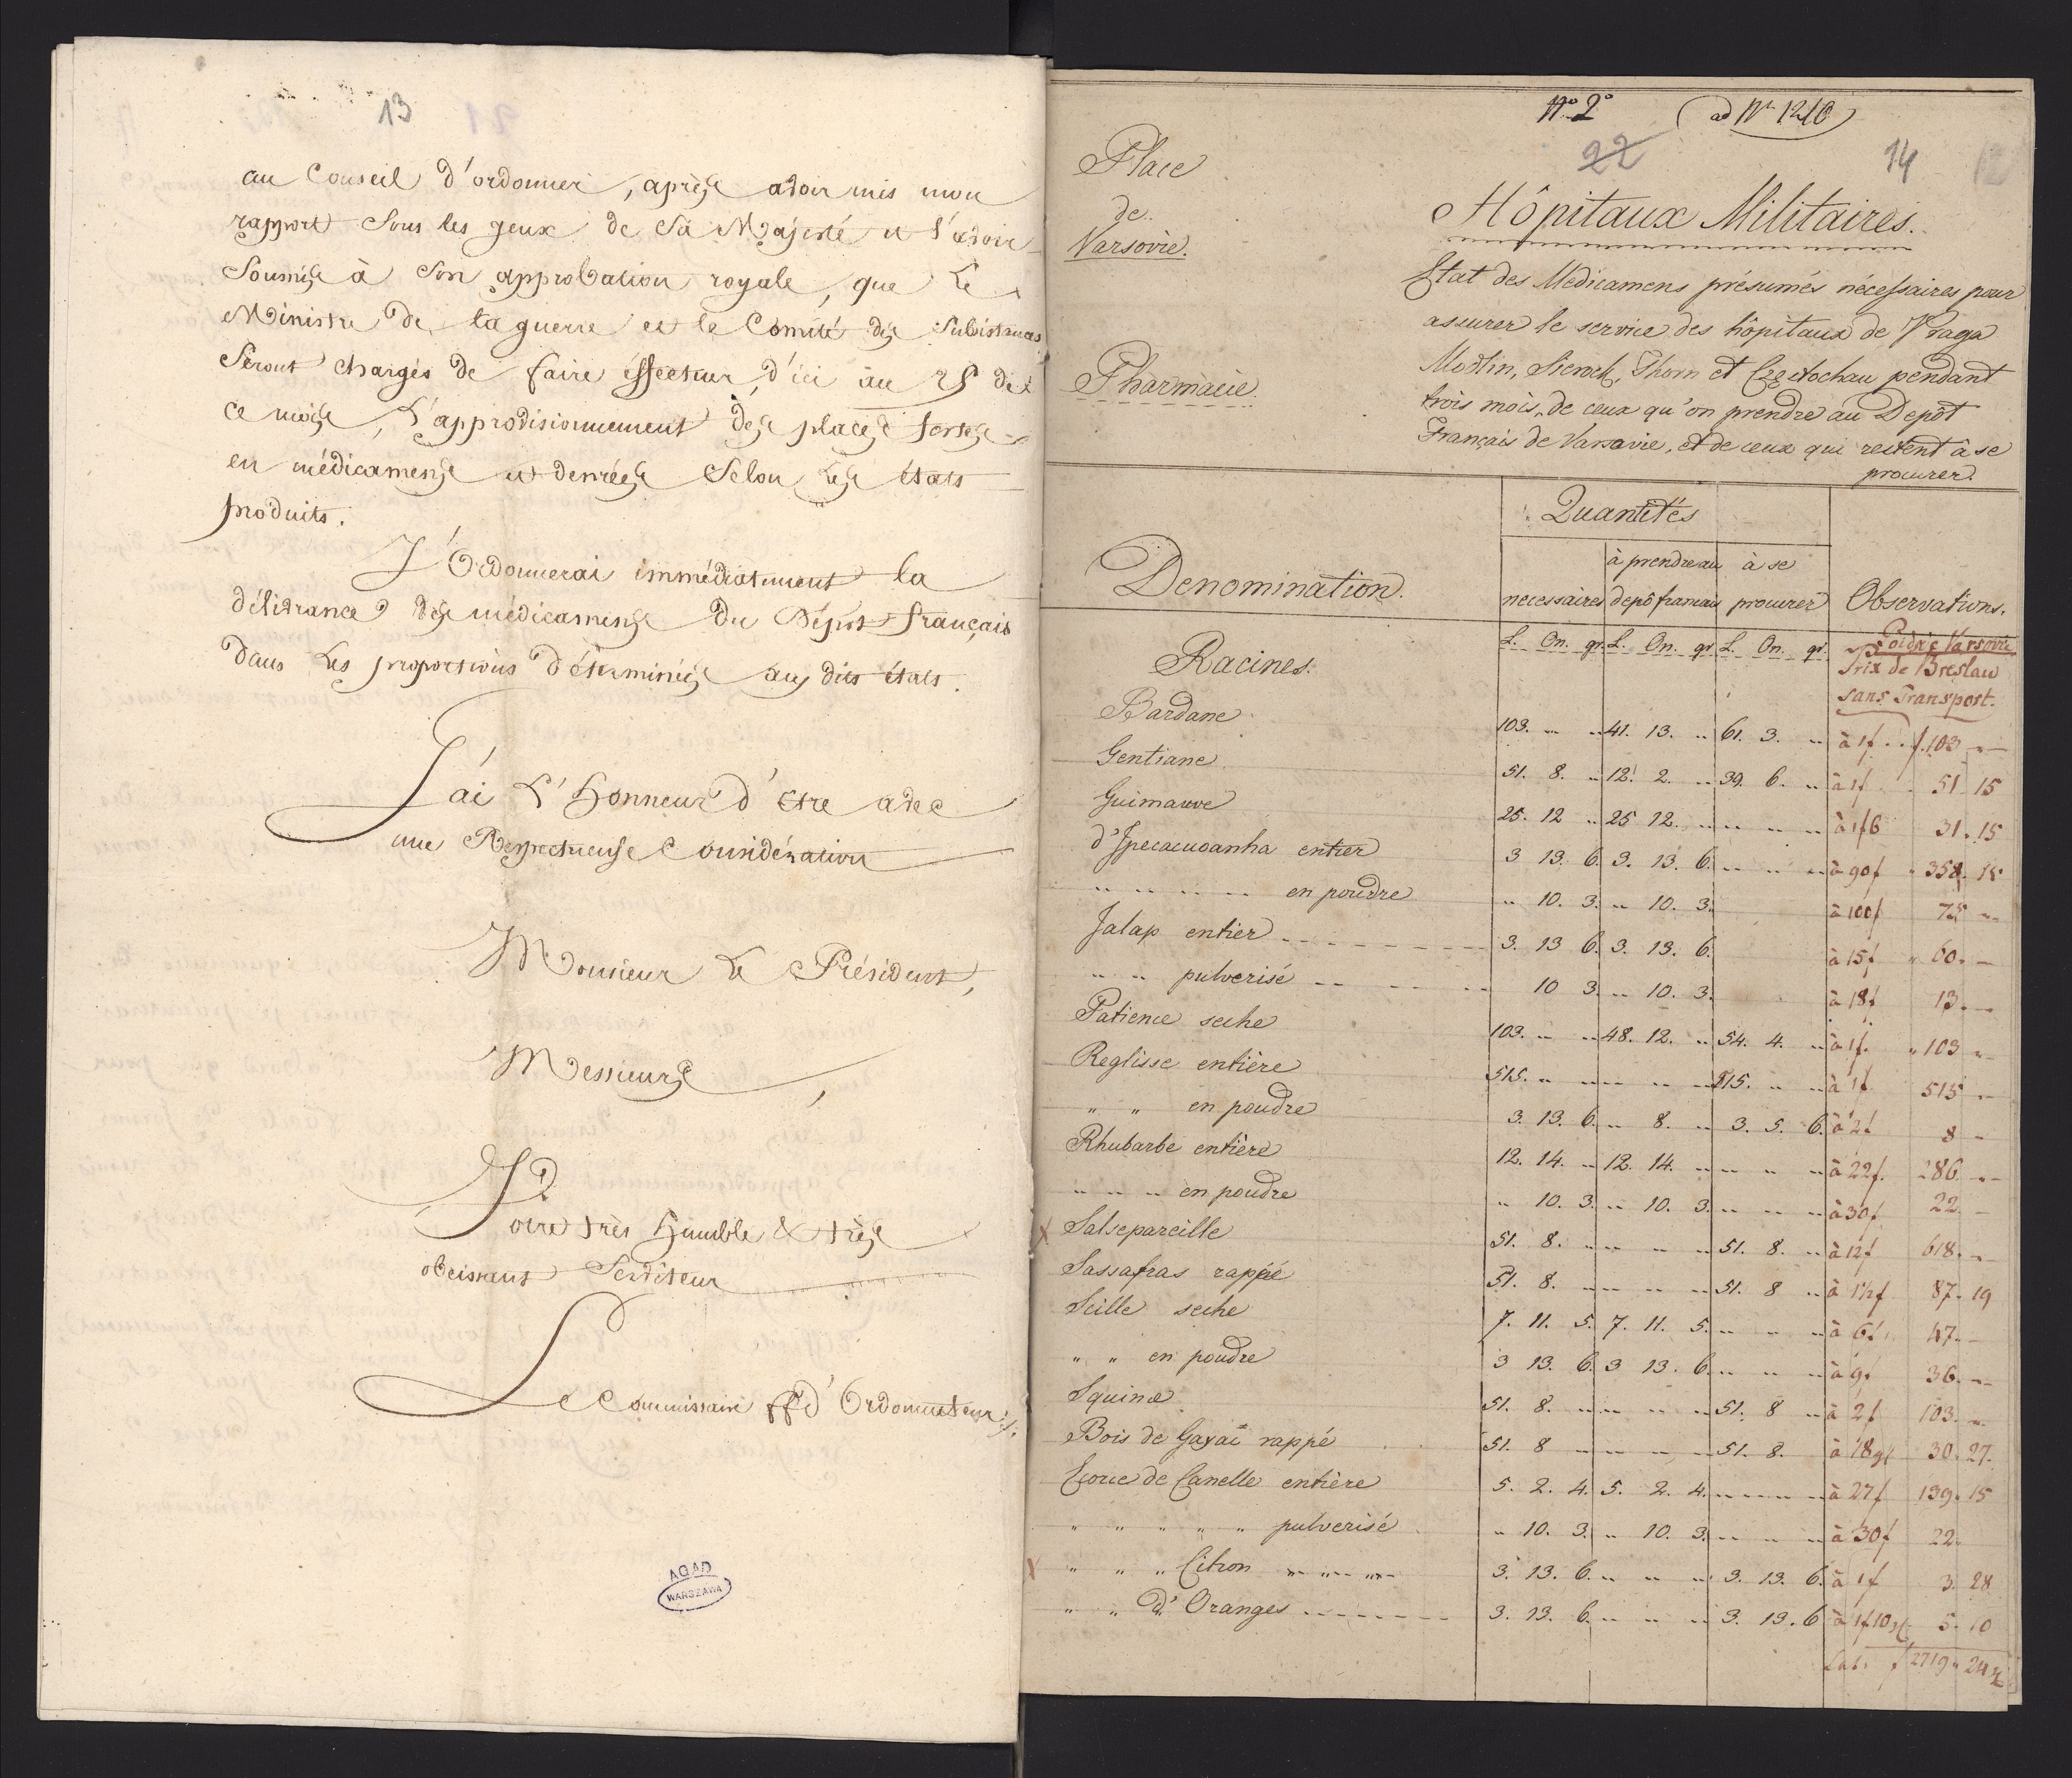 13
au Conseil d'ordonner, après avoir mis mon
rapport sous les yeux de Sa Majesté et l'avoir
soumis à Son approbation royale, que le
Ministre de la guerre et le Comité des Subsistances
seront chargés de faire effectuer, d'ici au 25 de
ce mois, l'approvisionnement des places fortes
en médicamens et denrées selon les états
produits.
J'Ordonnerai immédiatement la
délivrance des médicamens du Dépôt français
dans les proportions déterminées aux dits états.
J'ai L'Honneur d'Etre avec
une Respectueuse Considération
Monsieur Le Président,
Messieurs,
Votre très Humble & très
obeissant Serviteur
Le Commissaire ff d'Ordonnateur
AGAD
WARSZAWA
N° 2° ad N° 1210
22 14
Place
de
Varsovie.
Pharmacie.
Hôpitaux Militaires.
Etat des Medicamens présumés nécessaires pour
assurer le service des hôpitaux de Praga
Modlin, Sierock, Thorn et Czectochau pendant
trois mois, de ceux qu'on prendre au Depôt
Français de Varsovie, et de ceux qui restent à se
procurer.
Denomination. Quantités Observations.
necessaires à prendre au depô francais à se procurer
L. On. gr. L. On. gr. L. On. gr. Poids de Varsovie
Racines. Prix de Breslau
sans Transport.
Bardane 103. " " 41. 13. " 61. 3. " à 1f f. 103 "
Gentiane 51. 8. " 12. 2. " 39. 6. " à 1f 51. 15
Guimauve 25. 12 " 25 12. " " " " à 1f6 31. 15
d'Ipecacuoanha entier 3 13. 6. 3. 13. 6. " " " à 90f 358. 15
" " " " en poudre " 10. 3. " 10. 3. à 100f 75 "
Jalap entier 3. 13 6. 3. 13. 6. à 15f " 60. "
" " pulverisé 10 3. " 10. 3. à 18f 13. "
Patience seche 103. " " 48. 12. " 54. 4. " à 1f. " 103 "
Reglisse entière 515. " " " " " 515. " " à 1f 515 "
" " en poudre 3. 13. 6. " 8. " 3. 5. 6. à 2f 8 "
Rhubarbe entière 12. 14. " 12. 14. " " " " à 22f. 286. "
" " " en poudre " 10. 3. " 10. 3. " " " à 30f 22. "
x Salsepareille 51. 8. " " " " 51. 8. " à 12f 618. "
Sassafras rappé 51. 8. " " " " 51. 8 " à 1½f 87. 19
Scille seche 7. 11. 5. 7. 11. 5. " " " à 6f 47. "
" " en poudre 3 13. 6. 3 13. 6. " " " à 9f 36. "
Squine 51. 8. " " " " 51. 8 " à 2f 103. "
Bois de Gayac rappé 51. 8 " " " " 51. 8. à 18gr 30. 27.
Ecorce de Canelle entière 5. 2. 4. 5. 2. 4. " " " à 27f 139. 15
" " " " " pulverisé " 10. 3. " 10. 3. " " " à 30f 22.
x " " " Citron " " " 3. 13. 6. " " " 3. 13. 6. à 1f 3. 28
" " d'Oranges 3. 13. 6. " " " 3. 13. 6 à 1f10gr 5. 10
Lat. f 2719 " 24